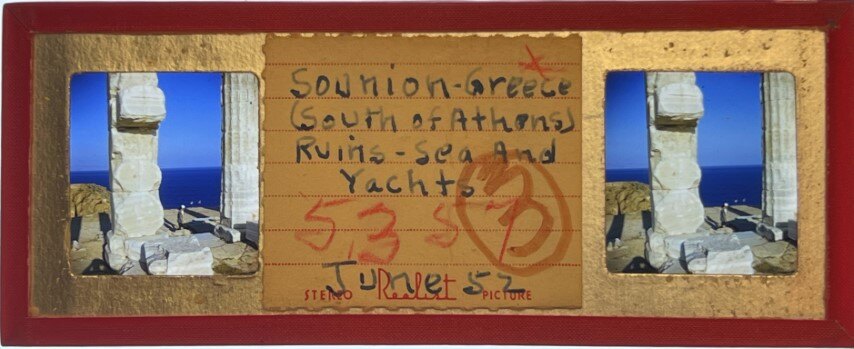 Sounion-Greece
(South of Athens)
Ruins-Sea And
Yachts
3
5,357
June 52
STEREO Realist PICTURE